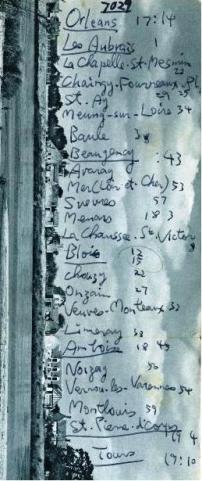 7029
Orleans 17:14
Les Aubrais 1
La Chapelle-St-Mesmin
22
Chaingy-Fourneaux-Pl
St. Ay 29
Meung-sur-Loire 34
Baule 38
Beaugency :43
Avaray
Mer (Loir-et-Cher) 53
Suevres 57
Menars 18 3
La Chaussee-St-Victor
Blois 12
15
Chouzy 22
Onzain 27
Veuves-Monteaux 33
Limeray 38
Amboise 18 45
Noizay 50
Vernou-les-Varennes 54
Montlouis 59
St. Pierre-d-Corps
19 4
Tours 19:10